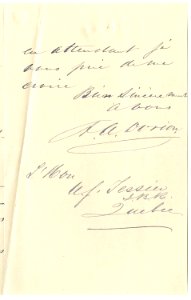 en attendant je
vous prie de me
croire
Bien Sincèrement
à vous
L'Hon
U. J. Tessier
Québec